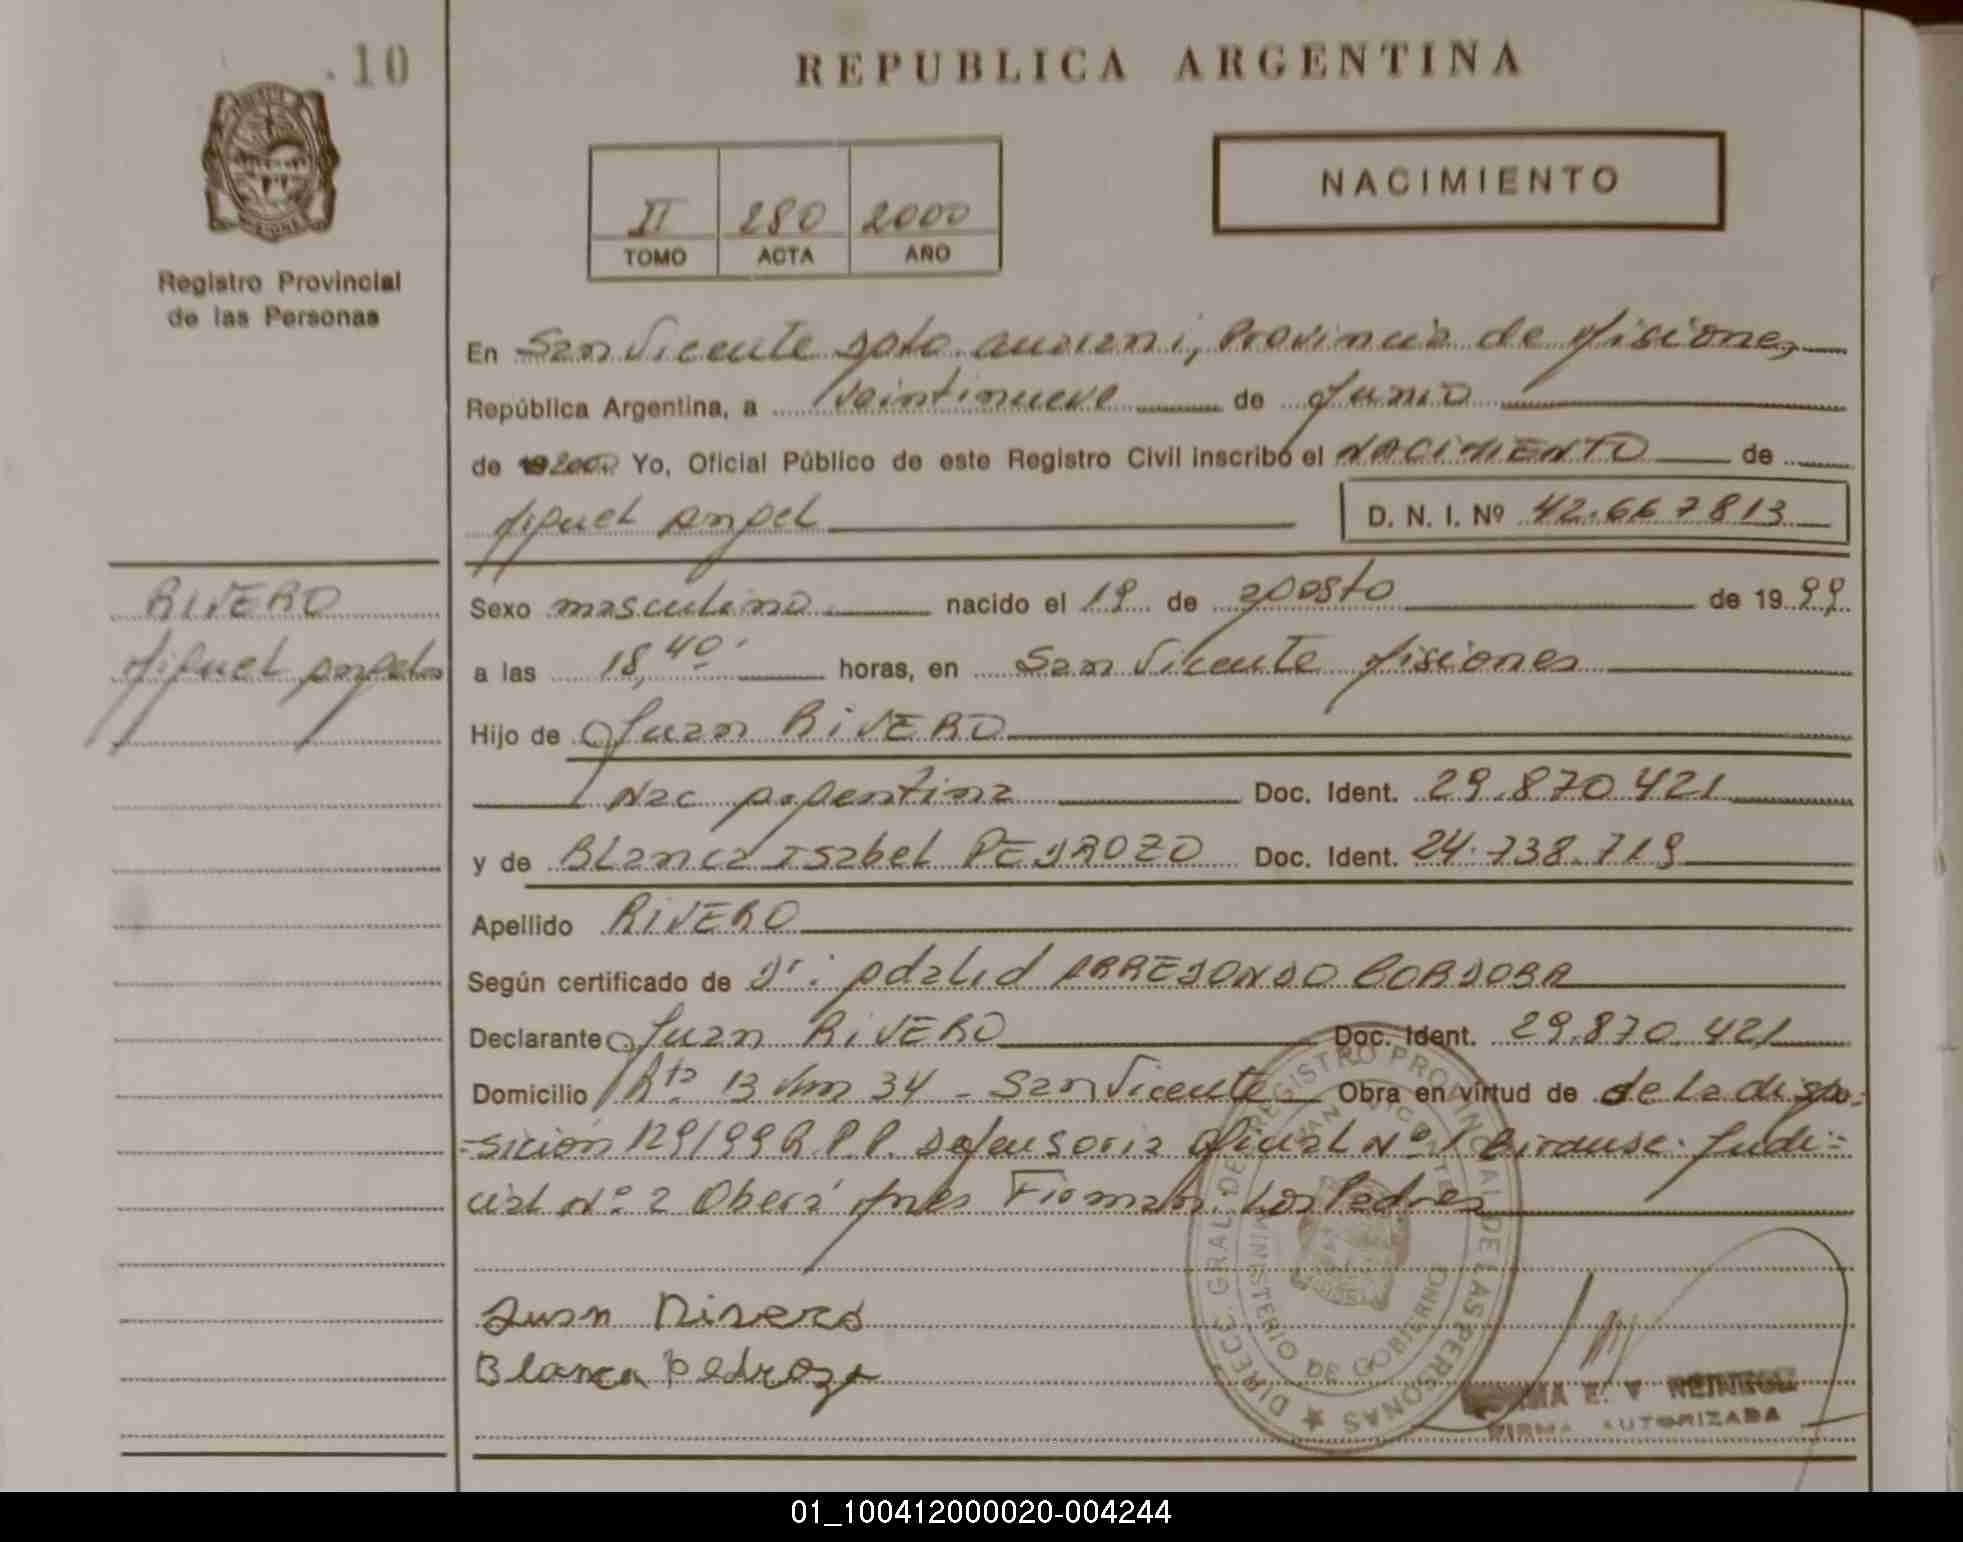 10
REPUBLICA ARGENTINA
NACIMIENTO
II 280 2000
TOMO ACTA AÑO
Registro Provincial
de las Personas
En San Vicente Dpto. Guarani, Provincia de Misiones
República Argentina, a veintinueve de Junio
de 19 2000 Yo, Oficial Público de este Registro Civil inscribo el NACIMIENTO de
Miguel Angel D. N. I. Nº 42.667813
RIVERO
Miguel Angel
Sexo masculino nacido el 19 de agosto de 1999
a las 18,40' horas, en San Vicente Misiones
Hijo de Juan RIVERO
Nac Argentina Doc. Ident. 29.870.421
y de Blanca Isabel PEDROZO Doc. Ident. 24.738.719
Apellido RIVERO
Según certificado de Dr: Adalid ARREDONDO CORDOBA
Declarante Juan RIVERO Doc. Ident. 29.870.421
Domicilio Rta 13 km 34 - San Vicente Obra en virtud de de la dispo-
-sición 129/99 R.P.P. Defensoria Oficial Nº 1 Circunsc. Judi-
cial Nº 2 Oberá Mnes Firman Los Padres
Juan Rivero
Blanca Pedrozo
DIRECC. GRAL. DEL REGISTRO PROVINCIAL DE LAS PERSONAS
SAN VICENTE
MINISTERIO DE GOBIERNO
FIRMA AUTORIZADA
01_100412000020-004244